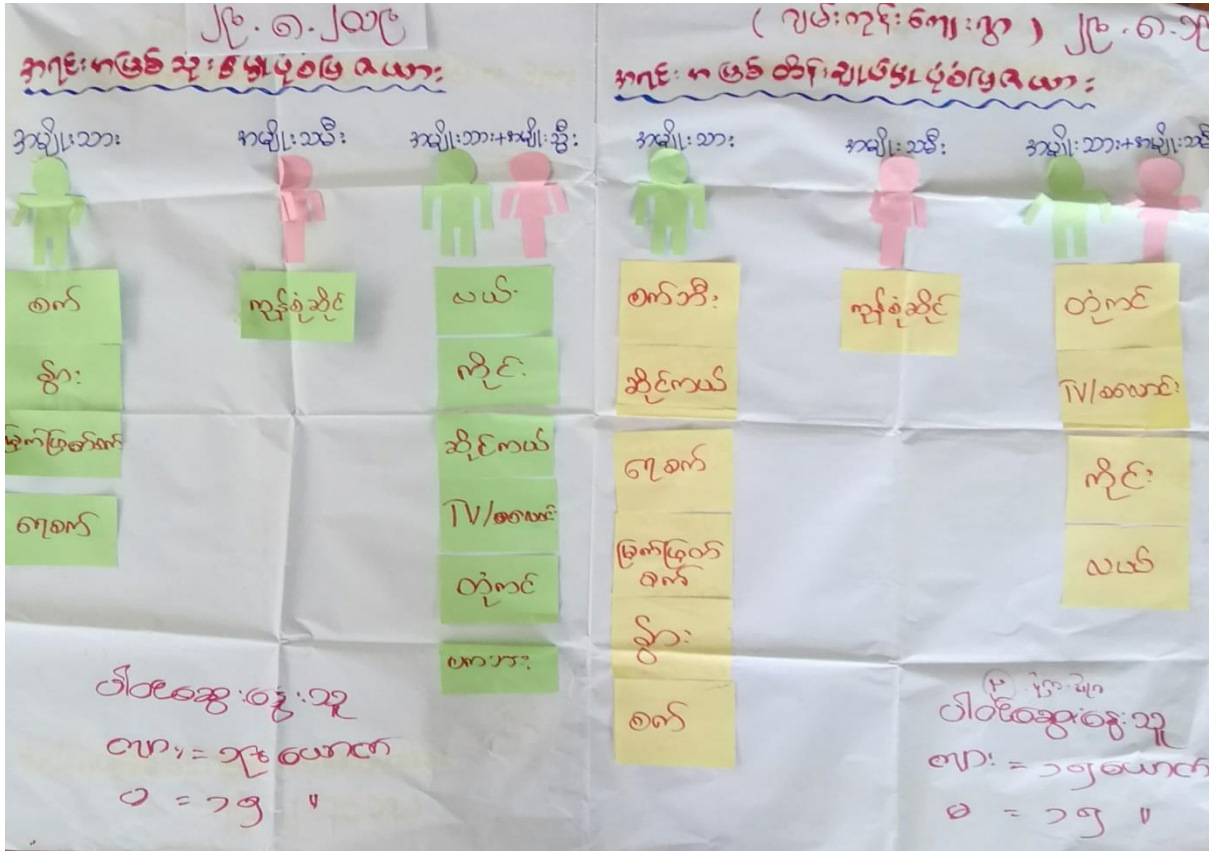 ၂၉.၁.၂၀၁၉
အရင်းအမြစ်သုံးစွဲမှုပုံစံပြဇယား
အမျိုးသား
အမျိုးသမီး
အမျိုးသား+အမျိုးသ္မီး
စက်
နွား
မြက်ဖြတ်စက်
ရေစက်
ကုန်စုံဆိုင်
လယ်
ကိုင်း
ဆိုင်ကယ်
TV/စလောင်း
တုံကင်
ပါဝင်ဆွေးနွေးသူ
ကျား = ၁၉ ယောက်
မ = ၁၅ "
(လှမ်းကုန်းကျေးရွာ) ၂၉.၁.၁၉
အရင်းအမြစ်ထိန်းချုပ်မှုပုံစံပြဇယား
အမျိုးသား
အမျိုးသမီး
အမျိုးသား+အမျိုးသမီ
စက်ဘီး
ဆိုင်ကယ်
ရေစက်
မြက်ဖြတ်
စက်
နွား
စက်
ကုန်စုံဆိုင်
တုံကင်
TV/စလောင်း
ကိုင်း
လယ်
ပါဝင်ဆွေးနွေးသူ
ကျား = ၁၅ယောက်
မ = ၁၅ "